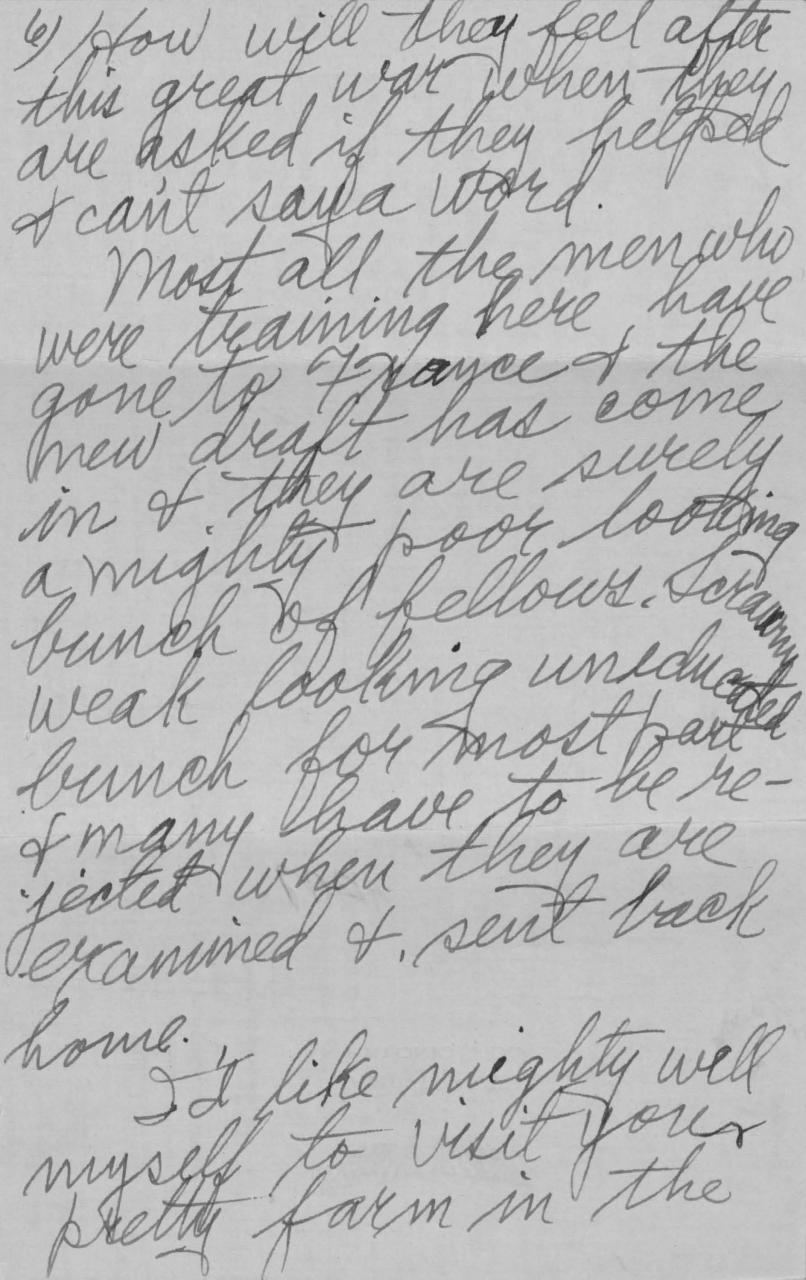 6) How will they feel after
this great war when they
are asked if they helped
& can't say a word.
Most all the men who
were training here have
gone to France & the
new draft has come
in & they are surely
a mighty poor looking
bunch of fellows. Scrawny
weak looking uneducated
bunch for most part
& many have to be re-
jected when they are
examined &. sent back
home.
I'd like mighty well
myself to visit your
pretty farm in the